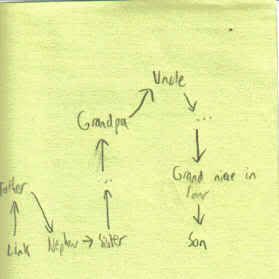 Uncle
...
Grandpa
Grand niece in
law
...
Father
Link
Nephew → Sister
Son